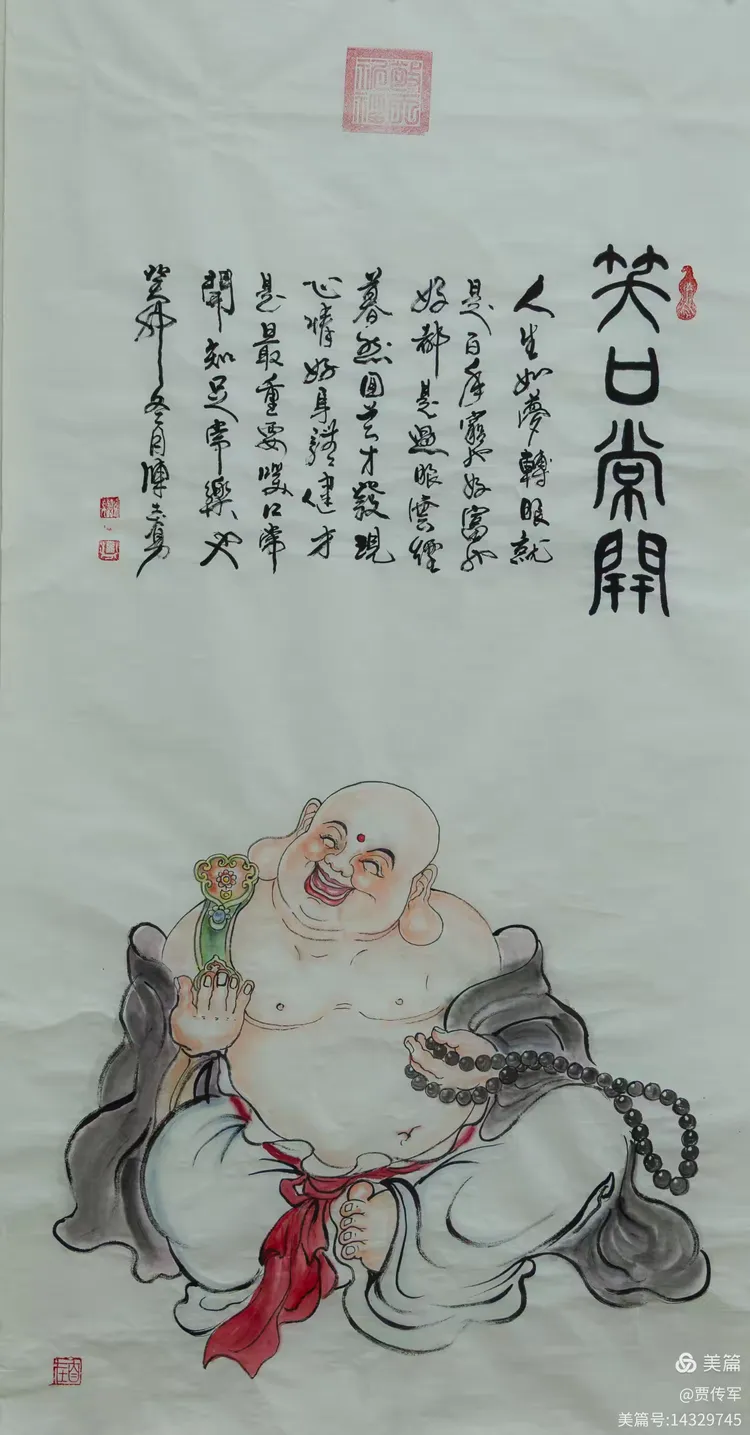 笑口常開
人生如夢轉眼就
是百年窮也好富也
好都是過眼雲煙
暮然回首才發現
心情好身體健才
是最重要咲口常
開知足常樂也
癸卯冬月陳
美篇
@贾传军
美篇号:14329745